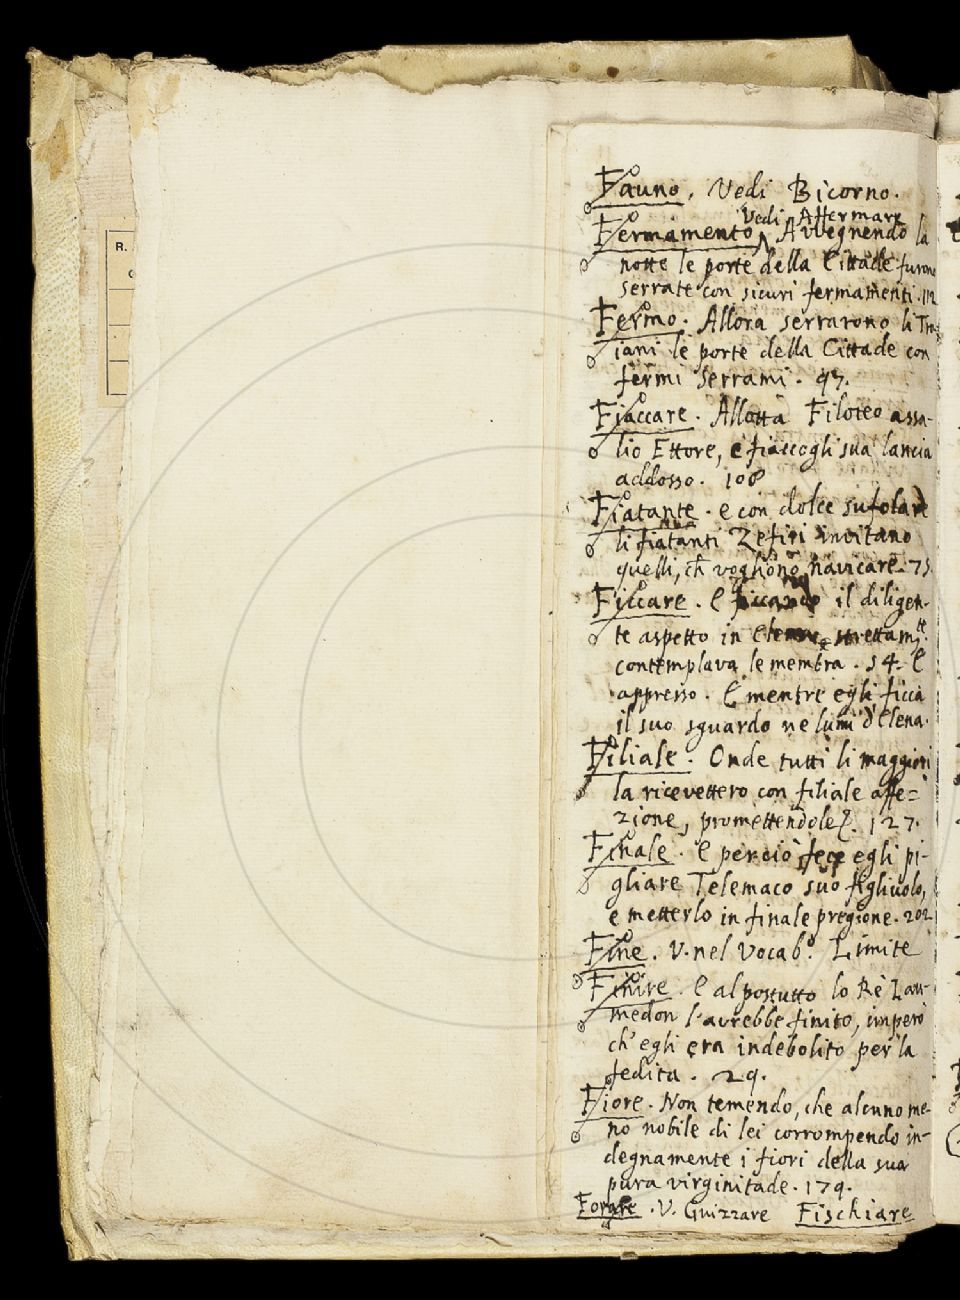 R.
Fauno. Vedi Bicorno.
Vedi Affermare
Fermamento, Avvegnendo la
notte le porte della Cittade furono
serrate con sicuri fermamenti. 112
Fermo. Allora serrarono li Tro-
iani le porte della Cittade con
fermi serrami. 97.
Fiaccare. Allotta Filoteo assa-
lio Ettore, e fiaccogli sua lancia
addosso. 108
Fiatante. e con dolce sufolare
li fiatanti Zefiri invitano
quelli, ch̃ vogliono navicare. 75.
Ficcare. E ficcando il diligen-
te aspetto in Elena, strettamte.
contemplava le membra. 54. E
appresso. E mentre egli ficca
il suo sguardo ne lumi d'Elena.
Filiale. Onde tutti li maggiori
la ricevettero con filiale affe=
zione, promettendole. 127.
Finale. E perciò fece egli pi-
gliare Telemaco suo figliuolo,
e metterlo in finale pregione. 202
Fine. V. nel Vocabo. Limite
Finire. E al postutto lo Rè Lau-
medon l'avrebbe finito, imperò
ch'egli era indebolito per la
fedita. 29.
Fiore. Non temendo, che alcuno me-
no nobile di lei corrompendo in-
degnamente i fiori della sua
pura virginitade. 179.
V. Guizzare Fischiare